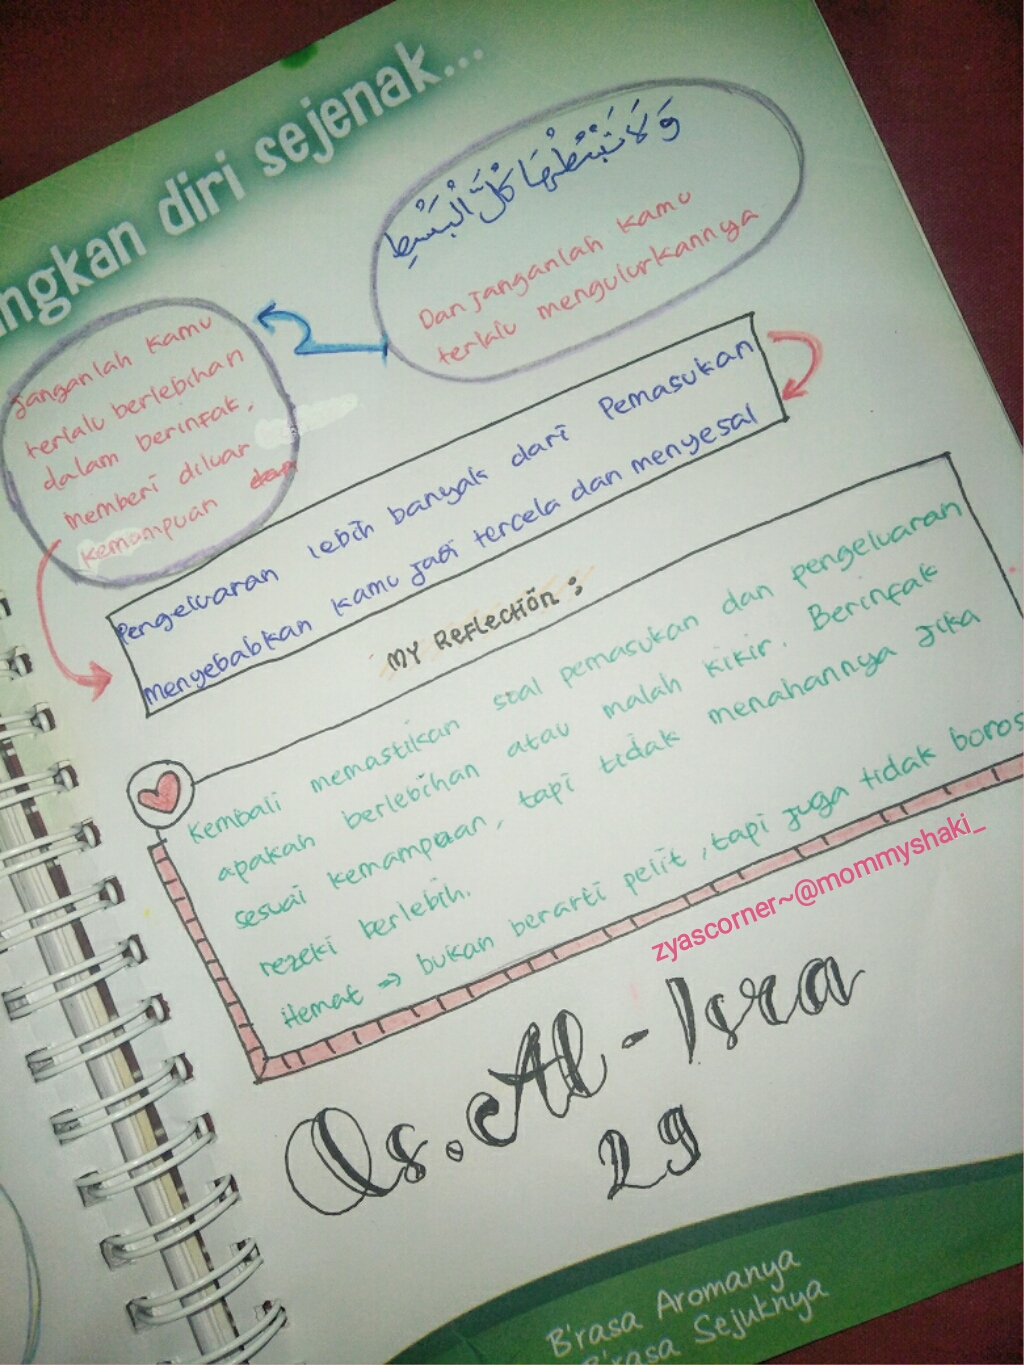 ngkan diri sejenak...
وَلَا تَبْسُطْهَا كُلَّ الْبَسْطِ
Dan janganlah kamu
terlalu mengulurkannya
Janganlah kamu
terlalu berlebihan
dalam berinfak,
memberi diluar
kemampuan
Pengeluaran lebih banyak dari Pemasukan
menyebabkan kamu jadi tercela dan menyesal
MY REFLECTION :
Kembali memastikan soal pemasukan dan pengeluaran
apakah berlebihan atau malah kikir. Berinfak
sesuai kemampuan, tapi tidak menahannya jika
rezeki berlebih.
Hemat => bukan berarti pelit, tapi juga tidak boros
zyascorner~@mommyshaki_
Qs. Al-Isra
29
B'rasa Aromanya
B'rasa Sejuknya